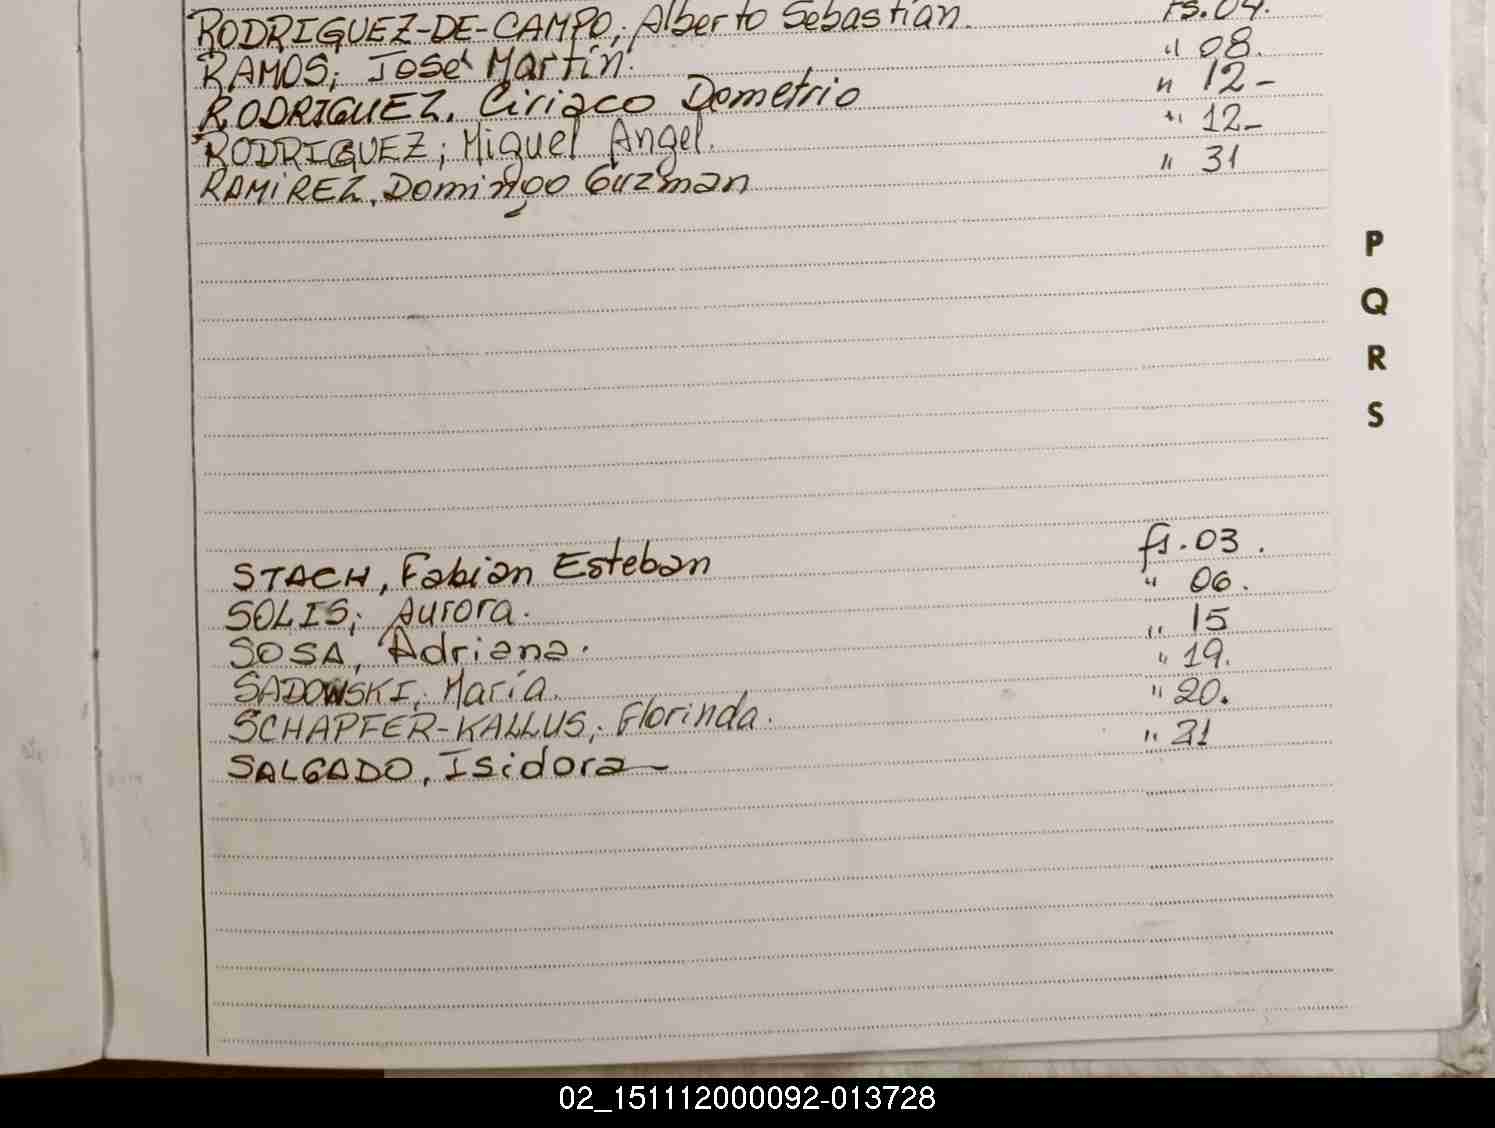 RODRIGUEZ-DE-CAMPO, Alberto Sebastián. Fs. 04.
RAMOS; José Martín. " 08.
RODRIGUEZ, Ciriaco Demetrio " 12-
RODRIGUEZ; Miguel Angel. " 12-
RAMIREZ, Domingo Guzman " 31
P
Q
R
S
STACH, Fabian Esteban fs. 03.
SOLIS; Aurora. " 06.
SOSA, Adriana. " 15
SADOWSKI; María. " 19.
SCHAPFER-KALLUS; Florinda. " 20.
SALGADO, Isidora— " 21
02_151112000092-013728